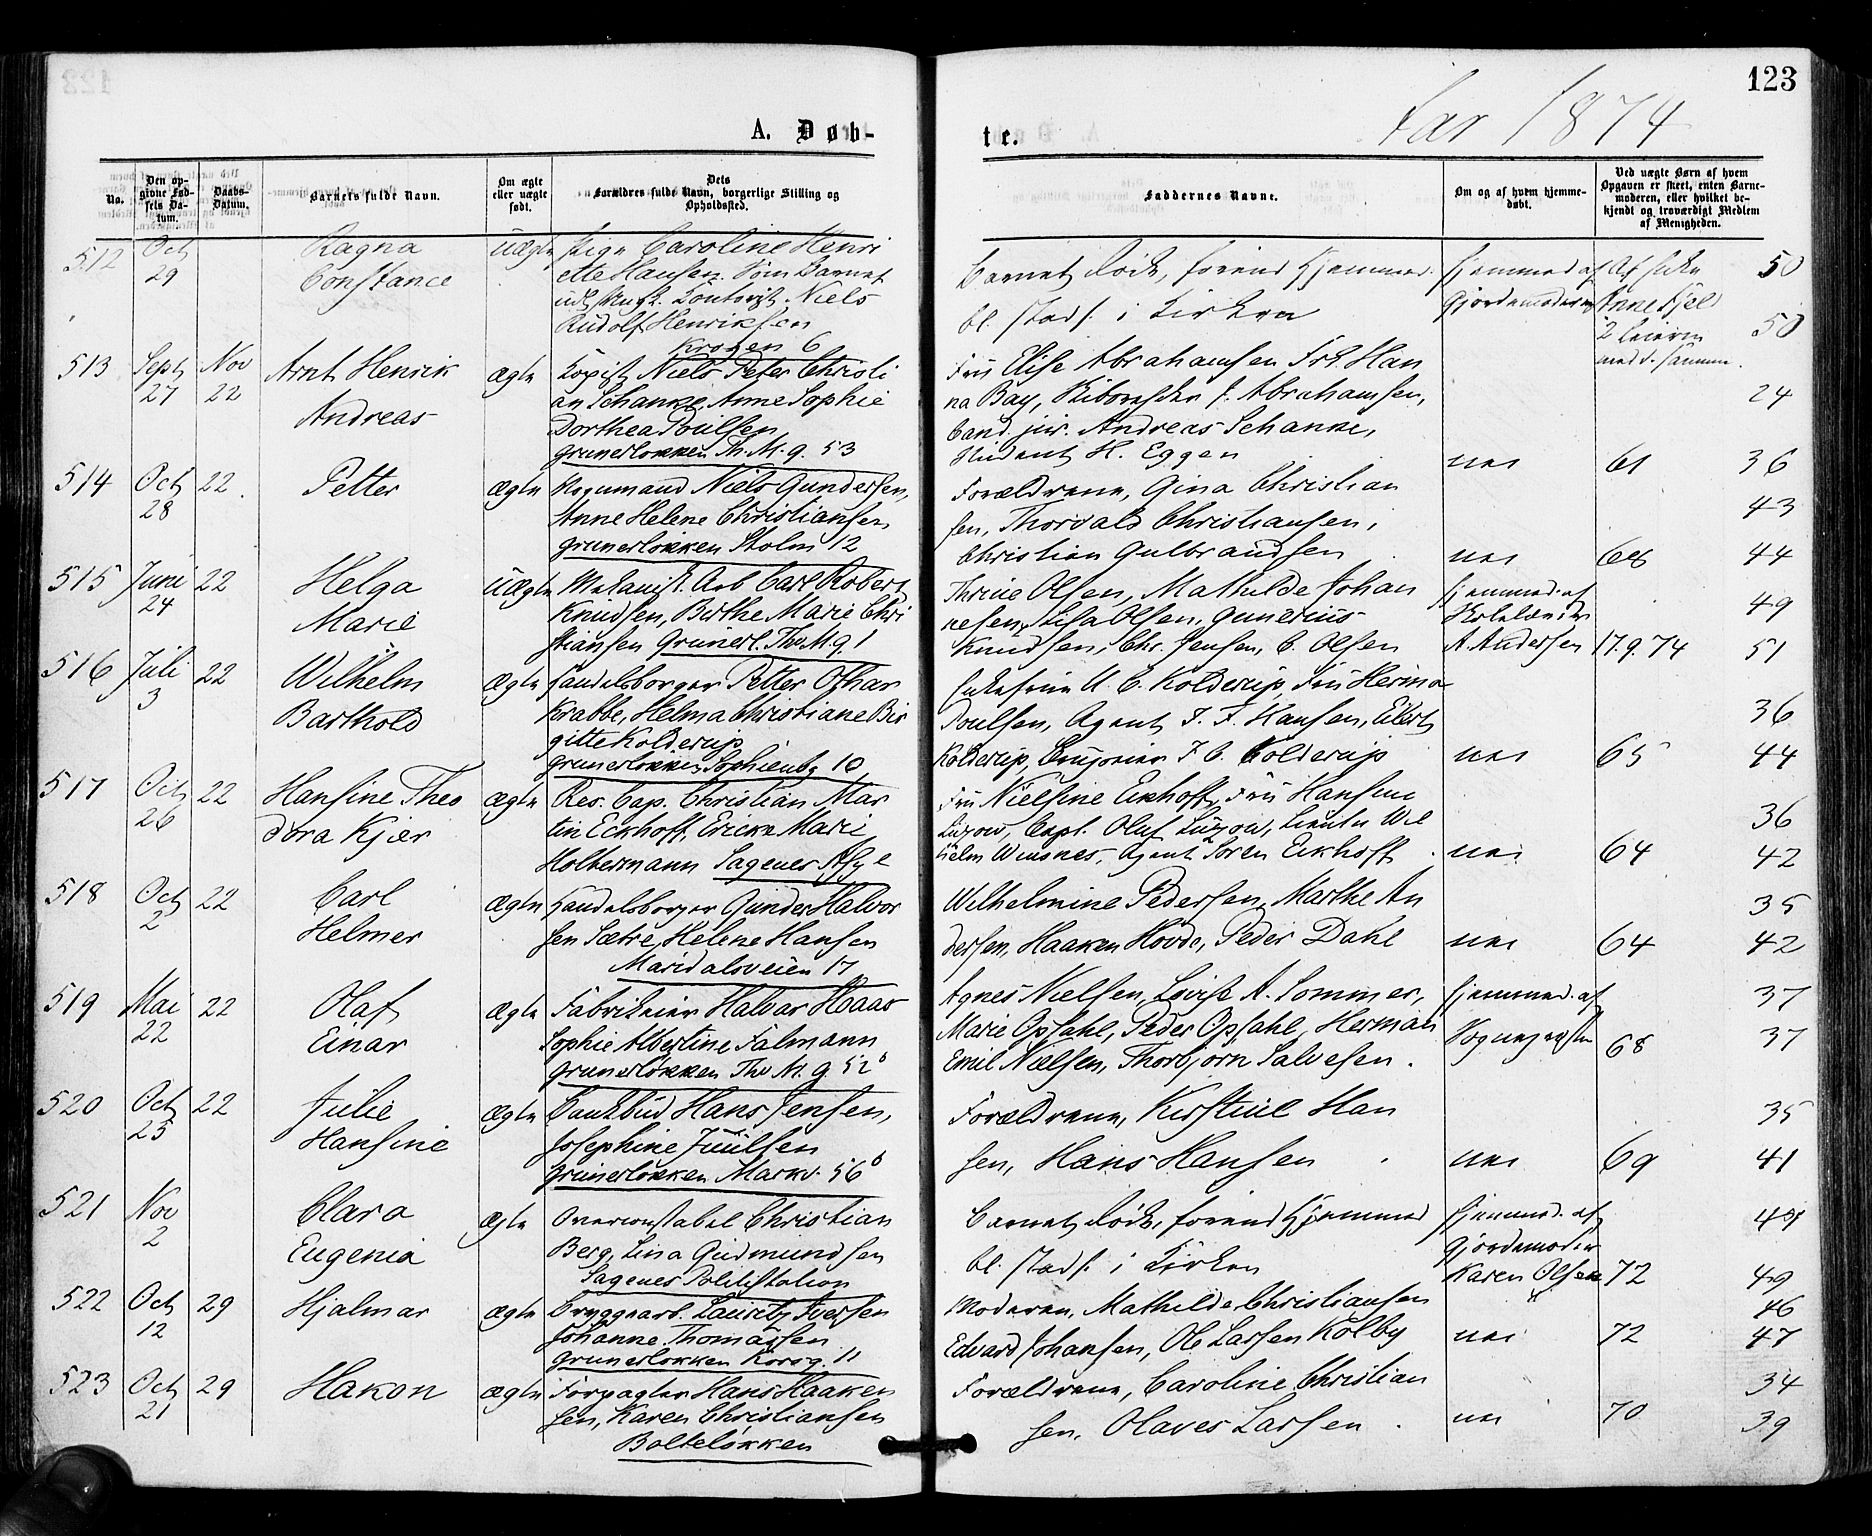 123
A. Døb-
te.
for 1874
No.
Den op-
givne Fød-
sels Da-
tum.
Daabs-
Datum.
Barnets fulde Navn.
Om ægte
eller uægte
født.
Dets
Forældres fulde Navn, borgerlige Stilling og
Opholdssted.
Faddernes Navne.
Om og af hvem hjemme-
døbt.
Ved uægte Børn af hvem
Opgaven er skeet, enten Barne-
moderen, eller hvilket be-
kjendt og troværdigt Medlem
af Menigheden.
512 Oct 29
Ragna
Constance
uægte
Pige Caroline Henri
ette Hansen
Kontorist Niels
Rudolf Henriksen
Krogen 6
Barnet døde, forend Hjemmed.
bl. stadf. i Kirken
hjemmed af
Gjordemoderen
50
50
513 Sept 27 Nov 22
Arnt Henrik
Andreas
ægte
Kopist Niels Peter Christi
an Schanke, Anne Sophie
Dorthea Poulsen
Grunerløkken Th. M. g. 53
Fru Elise Abrahamsen Frk. Han
na Bay, J. Abrahamsen,
Cand. jur. Andreas Schanke,
Student H. Eggen
nei
61
24
36
514 Oct 28 22
Petter
ægte
Vognmand Niels Gundersen,
Anne Helene Christiansen
Grunerløkken Stolm 12
Forældrene, Gina Christian
sen, Thorvald Christiansen,
Christian Gulbrandsen
nei
68
43
44
515 Juni 24 22
Helga
Marie
uægte
Mekanisk. Arb Carl Robert
Knudsen, Birthe Marie Chri
stiansen Grunerl. Tho M. g 1
Thrine Olsen, Mathilde Johan
nesen, Lisa Olsen, Gunerius
Knudsen, Chr. Jensen, C. Olsen
hjemmed. af
Skolelærer
A. Andersen
17.9.74
49
51
516 Juli 3 22
Wilhelm
Barthold
ægte
Handelsborger Petter Othar
Krabbe, Helma Christiane Bir
gitte Kolderup
Grunerløkken Sophienbg 10
Enkefrue U. C. Kolderup, Fru Herma
Poulsen, Agent J. F. Hansen, Eilert
Kolderup, Ingenier F. C. Kolderup
nei
65
36
44
517 Oct 26 22
Hansine Theo
dora Kjær
ægte
Res. Cap. Christian Mar
tin Eckhoff, Ericka Marie
Holtermann Sagenes
Fru Nielsine Eckhoff, Fru Hansine
Lützow, Capt. Oluf Lützow, Wil
helm Winsnes, Agent Søren Eckhoff
nei
64
36
42
518 Oct 2 22
Carl
Helmer
ægte
Handelsborger Gunder Halvor
sen Sætre, Helene Hansen
Maridalsveien 17
Wilhelmine Pedersen, Marthe An
dersen, Haaken Hovde, Peder Dahl
nei
64
35
42
519 Mai 22 22
Olaf
Einar
ægte
Fabrikeier Halvor Haar
Sophie Albertine Falmann
Grunerløkken Tho M. g 52 b
Agnes Nielsen, Lovise A. Sommer,
Marie Opsahl, Peder Opsahl, Herman
Emil Nielsen, Thorbjorn Salvesen.
hjemmed. af
Sognepresten
68
37
37
520 Oct 25 22
Julie
Hansine
ægte
Bankbud Hans Jensen,
Josephine Juulsen
Grunerløkken Markv. 56 b
Forældrene, Kirstine Han
sen, Hans Hansen
nei
69
35
41
521 Nov 2
Clara
Eugenia
ægte
Overconstabel Christian
Berg, Lina Gudmundsen
Sagenes Politistation
Barnet døde, forend Hjemmed
bl. stadf. i Kirken
hjemmed. af
Gjordemoder
Karen Olsen
72
49
49
522 Oct 12 29
Hjalmar
ægte
Bryggearb. Lauritz Iversen
Johanne Thomassen
Grunerløkken Korsg. 11
Moderen, Mathilde Christiansen
Edvard Johansen, Ole Larsen Kolby
nei
72
46
47
523 Oct 21 29
Hakon
ægte
Forpagter Hans Haaken
sen, Karen Christiansen
Bolteløkken
Forældrene, Caroline Christian
sen, Olaves Larsen
nei
70
34
39